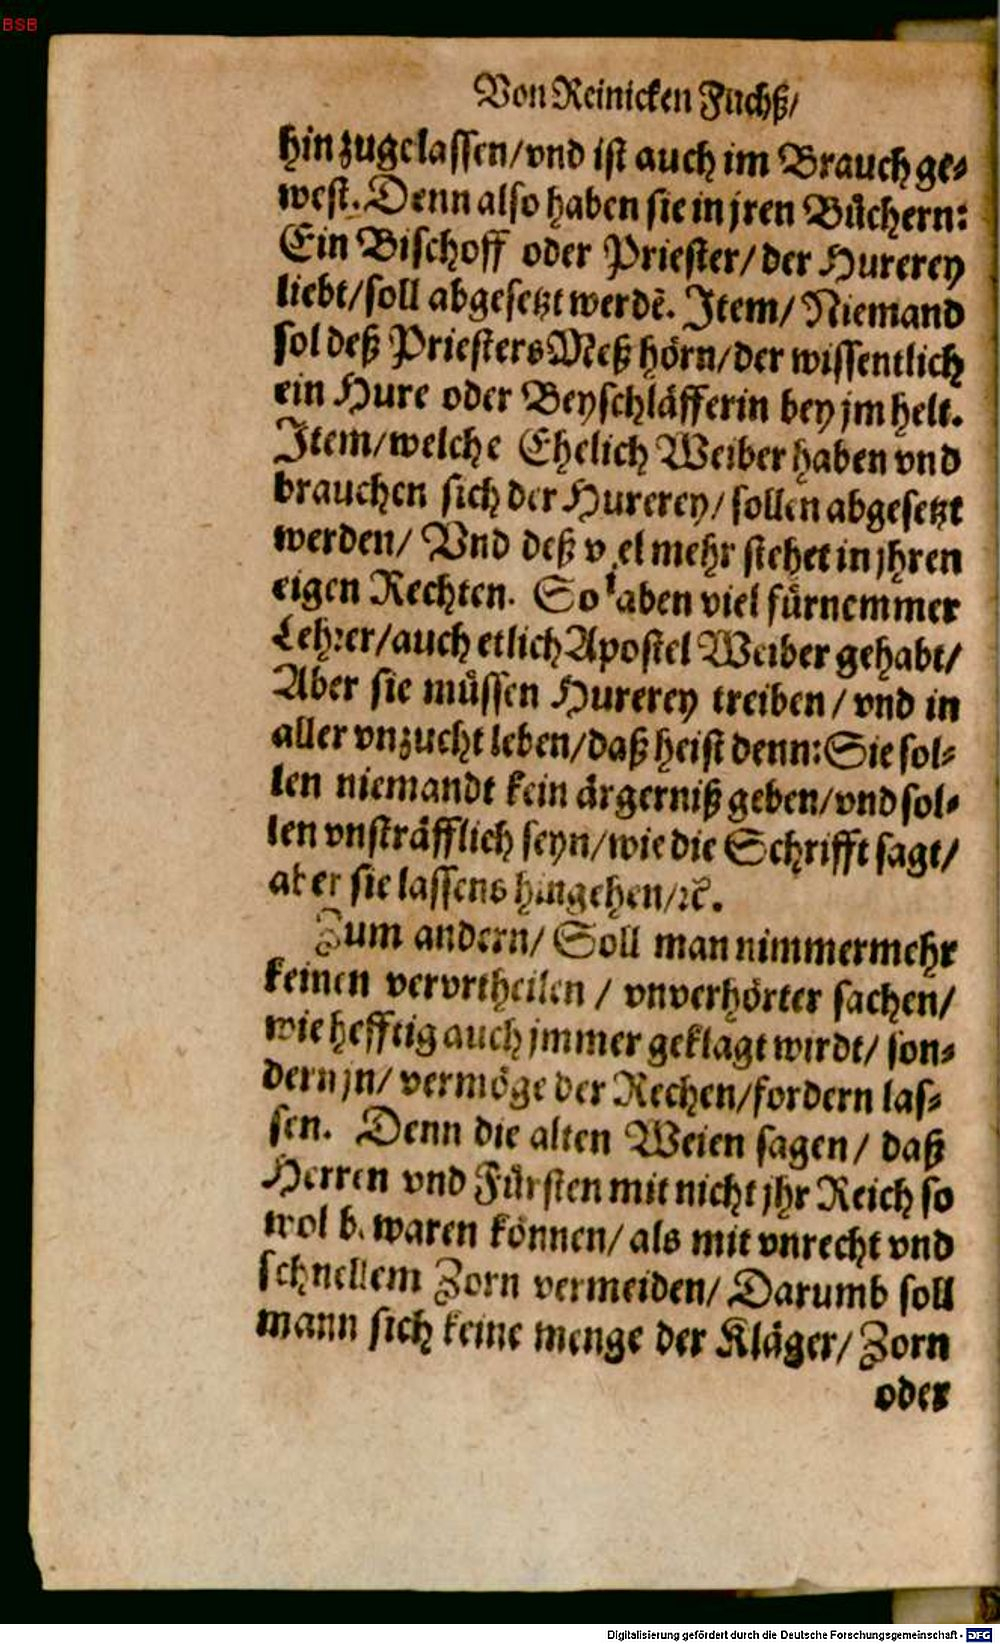 BSB
Von Reinicken Fuchß/
hin zugelassen/vnd ist auch im Brauch ge-
west. Denn also haben sie in jren Büchern:
Ein Bischoff oder Priester/ der Hurerey
liebt/soll abgesetzt werdē. Item/ Niemand
sol deß Priesters Meß hörn/der wissentlich
ein Hure oder Beyschläfferin bey jm helt.
Item/welche Ehelich Weiber haben vnd
brauchen sich der Hurerey/ sollen abgesetzt
werden/ Vnd deß v el mehr stehet in jhren
eigen Rechten. So aben viel fürnemmer
Lehrer/auch etlich Apostel Weiber gehabt/
Aber sie müssen Hurerey treiben/ vnd in
aller vnzucht leben/daß heist denn: Sie sol-
len niemandt kein ärgerniß geben/vnd sol-
len vnsträfflich seyn/wie die Schrifft sagt/
aber sie lassens hingehen/ꝛc̄.
Zum andern/ Soll man nimmermehr
keinen vervrtheilen / vnverhörter sachen/
wie hefftig auch jmmer geklagt wirdt/ son-
dern jn/ vermöge der Rechen/fordern las-
sen. Denn die alten Weien sagen/ daß
Herren vnd Fürsten mit nicht jhr Reich so
wol b. waren können/ als mit vnrecht vnd
schnellem Zorn vermeiden/ Darumb soll
mann sich keine menge der Kläger/ Zorn
oder
Digitalisierung gefördert durch die Deutsche Forschungsgemeinschaft - DFG